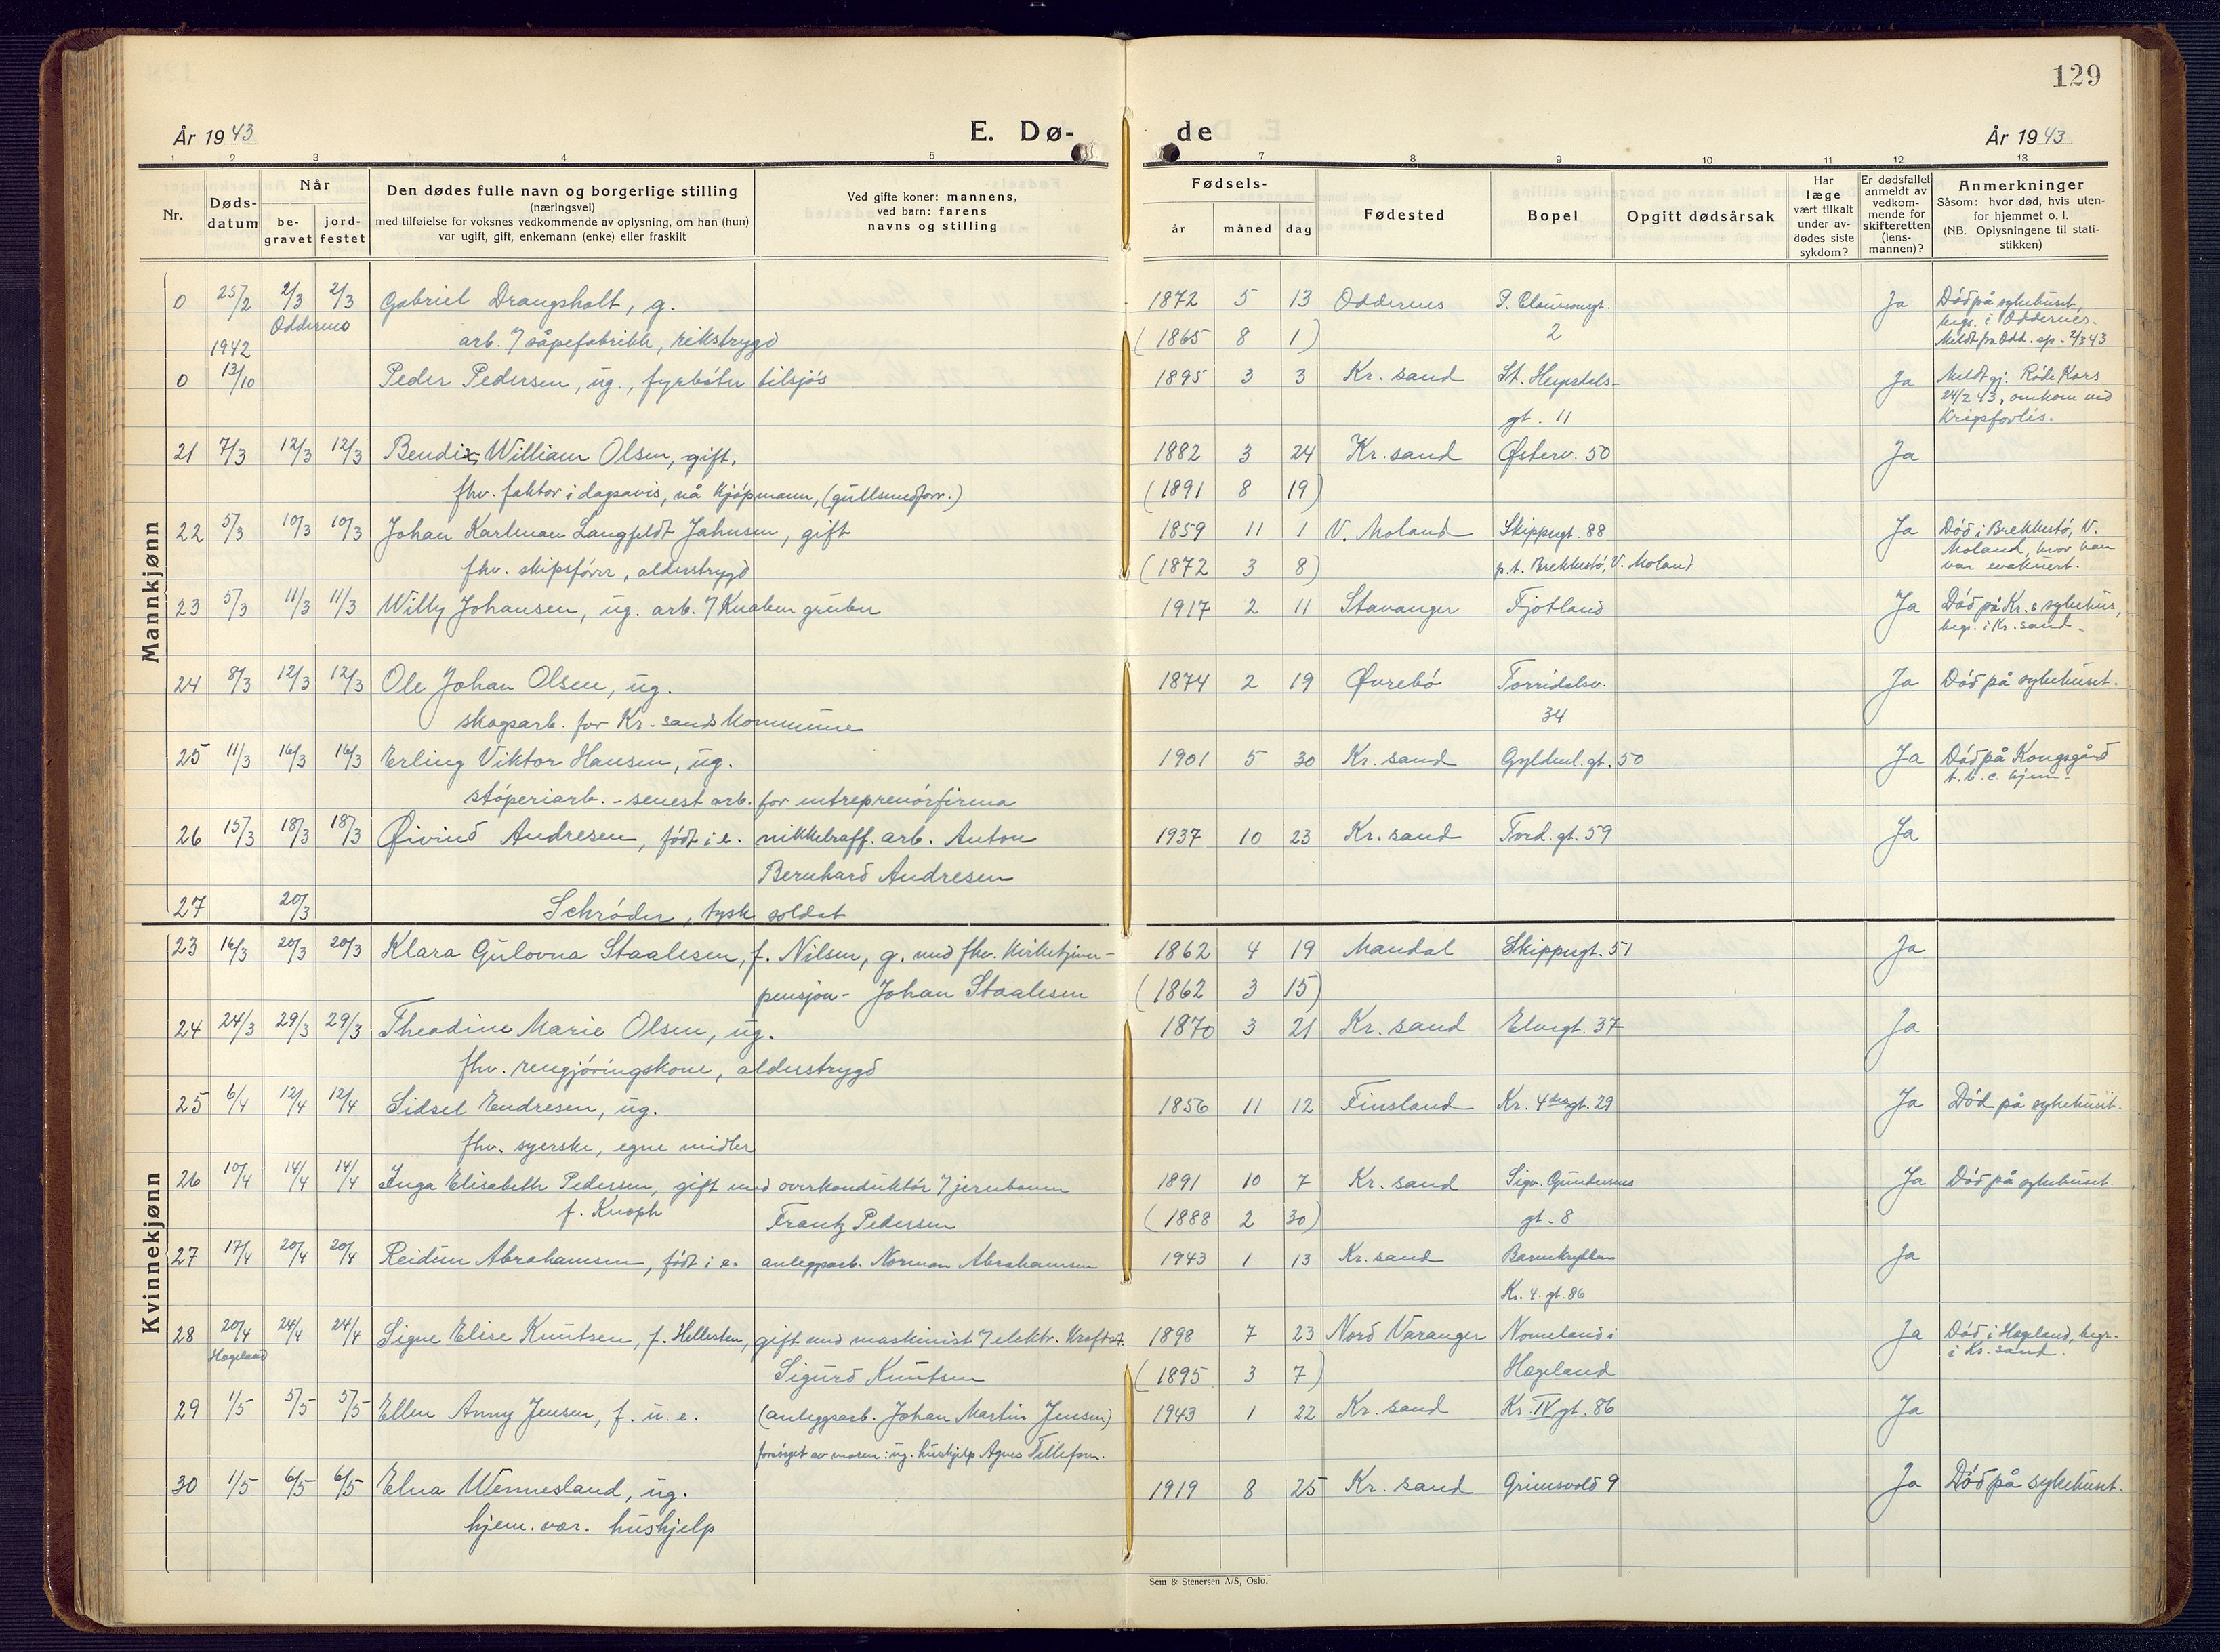 129
År 1943 E. Dø- de År 1943
1 2 3 4 5 7 8 9 10 11 12 13
Nr.
Døds-
datum
Når
be-
gravet
jord-
festet
Den dødes fulle navn og borgerlige stilling
(næringsvei)
med tilføielse for voksnes vedkommende av oplysning, om han (hun)
var ugift, gift, enkemann (enke) eller fraskilt
Ved gifte koner: mannens,
ved barn: farens
navns og stilling
Fødsels-
år måned dag
Fødested
Bopel
Opgitt dødsårsak
Har
læge
vært tilkalt
under av-
dødes siste
sykdom?
Er dødsfallet
anmeldt av
vedkom-
mende for
skifteretten
(lens-
mannen)?
Anmerkninger
Såsom: hvor død, hvis uten-
for hjemmet o. l.
(NB. Oplysningene til stati-
stikken)
Mannkjønn
0 25/2 2/3 2/3 Gabriel Drangsholt, g. 1872 5 13 Oddernes P. Claussonsgt. Ja Död på sykehuset,
Oddernes arb. i såpefabrikk, rikstrygd (1865 8 1) 2 begr. i Oddernes.
Meldt fra Odd. sp. 2/3 43
1942
0 13/10 Peder Pedersen, ug., fyrböter tilsjös 1895 3 3 Kr. sand St. Heyerdals- Ja Meldt gj. Röde Kors
gt. 11 24/2 43, omkom ved
Krigsforlis.
21 7/3 12/3 12/3 Bendix William Olsen, gift, 1882 3 24 Kr. sand Østerv. 50 Ja
fhv. faktor i dagsavis, nå kjöpmann, (gullsmedforr.) (1891 8 19)
22 5/3 10/3 10/3 Johan Karlman Langfeldt Jahnsen, gift 1859 11 1 V. Moland Skippergt. 88 Ja Död i Brekkestö, V.
fhv. skipsförer, alderstrygd (1872 3 8) p.t. Brekkestö, V. Moland Moland, hvor han
var evakuert.
23 5/3 11/3 11/3 Willy Johansen, ug. arb. i Knaben gruber 1917 2 11 Stavanger Fjotland Ja Död på Kr. s sykehus,
begr. i Kr. sand.
24 8/3 12/3 12/3 Ole Johan Olsen, ug. 1874 2 19 Øvrebö Torridalsv. Ja Död på sykehuset.
skogsarb. for Kr. sands kommune 34
25 11/3 16/3 16/3 Erling Viktor Hansen, ug. 1901 5 30 Kr. sand Gyldenl. gt. 50 Ja Död på Kongsgård
stöperiarb. - senest arb. for entreprenörfirma t.b.c. hjem.
26 15/3 18/3 18/3 Øivind Andresen, födt i e. nikkelraff. arb. Anton 1937 10 23 Kr. sand Tord. gt. 59 Ja
Bernhard Andresen
27 20/3 Schröder, tysk soldat
Kvinnekjønn
23 16/3 20/3 20/3 Klara Gulovna Staalesen, f. Nilsen, g. med fhv. kirketjener- 1862 4 19 Mandal Skippergt. 51 Ja
pensjon - Johan Staalesen (1862 3 15)
24 24/3 29/3 29/3 Theodine Marie Olsen, ug. 1870 3 21 Kr. sand Elvegt. 37 Ja
fhv. rengjöringskone, alderstrygd
25 6/4 12/4 12/4 Sidsel Endresen, ug. 1856 11 12 Finsland Kr. 4des gt. 29 Ja Död på sykehuset.
fhv. syerske, egne midler
26 10/4 14/4 14/4 Inga Elisabeth Pedersen, gift med overkonduktör i jernbanen 1891 10 7 Kr. sand Sigv. Gundersens Ja Död på sykehuset.
f. Knoph Frantz Pedersen (1888 2 30) gt. 8
27 17/4 20/4 20/4 Reidun Abrahamsen, födt i e. anleggsarb. Norman Abrahamsen 1943 1 13 Kr. sand Barnekrybben Ja
Kr. 4. gt. 86
28 20/4 24/4 24/4 Signe Elise Knutsen, f. Hellesten, gift med maskinist i elektr. kraftst. 1898 7 23 Nord Varanger Nomeland i Ja Död i Hægeland, begr.
Hægeland Sigurd Knutsen (1895 3 7) Hægeland i Kr. sand.
29 1/5 5/5 5/5 Ellen Anny Jensen, f. u. e. (anleggsarb. Johan Martin Jensen) 1943 1 22 Kr. sand Kr. IV gt. 86 Ja
forsörget av moren: ug. hushjelp Agnes Tellefsen.
30 1/5 6/5 6/5 Elna Wennesland, ug. 1919 8 25 Kr. sand Grimsvold 9 Ja Död på sykehuset.
hjem. vær. hushjelp
Sem & Stenersen A/S, Oslo.